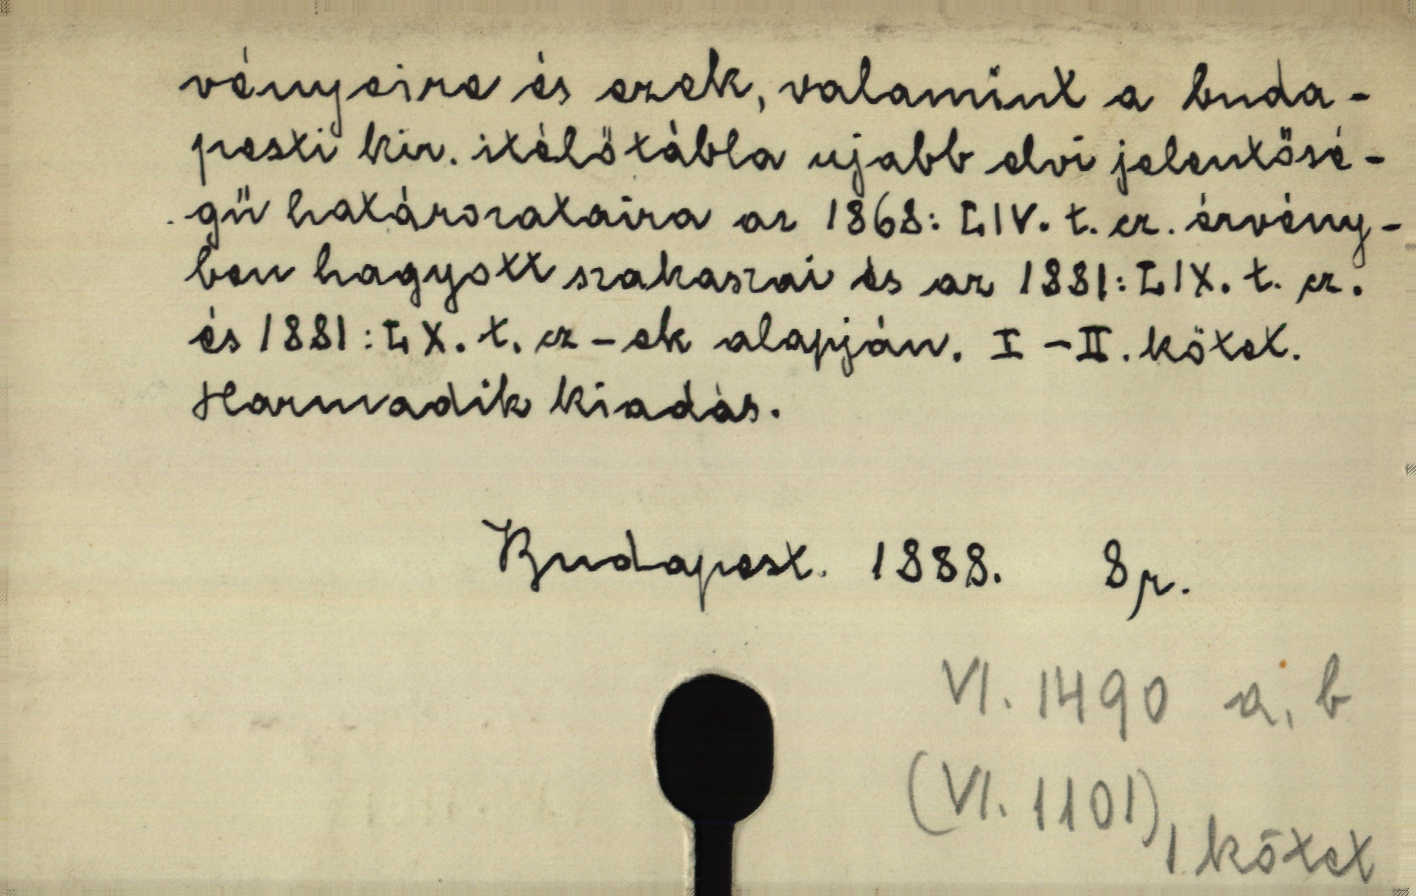 ványaira és ezek, valamint a buda-
pesti kir. itélőtábla ujabb elvi jelentősé-
gű határozataira az 1868: LIV. t. cz. érvény-
ben hagyott szakaszai és az 1881: LIX. t. cz.
és 1881: LX. t. cz-ek alapján. I-II. kötet.
Harmadik kiadás.
Budapest. 1888. 8r.
VI. 1490 a, b
(VI. 1101)
I kötet